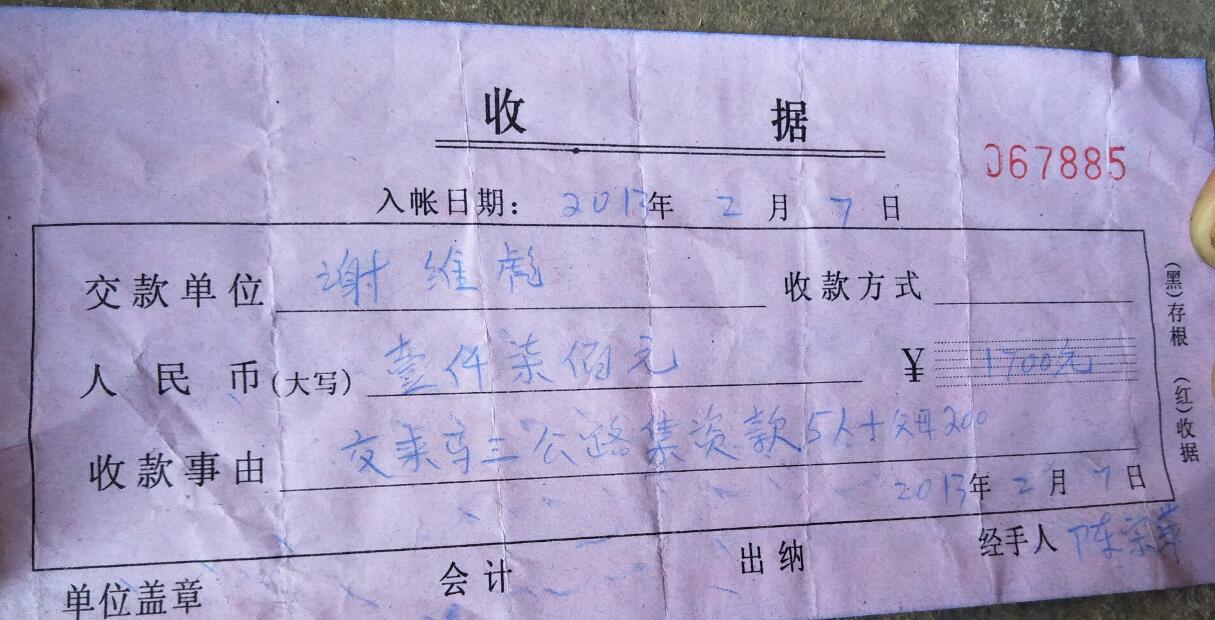 收 据
067885
入帐日期： 2013年 2 月 7 日
交款单位 谢维彪 收款方式
人民币(大写) 壹仟柒佰元 ￥ 1700元
收款事由 交来 三公路集资款5人十 200
2013年 2 月 7 日
单位盖章 会计 出纳 经手人 陈宗
(黑)存根 (红)收据